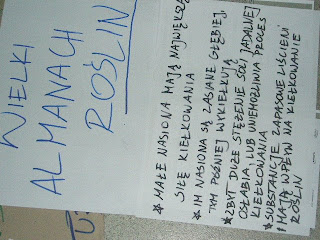 WIELKI
ALMANACH
ROŚLIN
* MAŁE NASIONA MAJĄ NAJWIĘKSZĄ
SIŁĘ KIEŁKOWANIA
* IM NASIONA SĄ ZASIANE GŁĘBIEJ,
TYM PÓŹNIEJ WYKIEŁKUJĄ
* ZBYT DUŻE STĘŻENIE SOLI JADALNEJ
OSŁABIA LUB UNIEMOŻLIWIA PROCES
KIEŁKOWANIA
* SUBSTANCJE ZAPASOWE LIŚCIENI
MAJĄ WPŁYW NA KIEŁKOWANIE
ROŚLIN